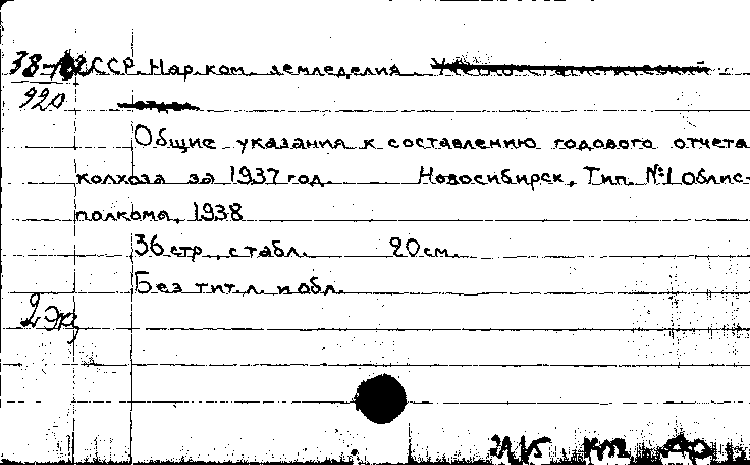 СССР. Нар. ком. земледелия.
920
Общие указания к составлению годового отчета
колхоза за 1937 год. Новосибирск, Тип. №1 Облис-
полкома, 1938
36 стр., с табл. 20 см.
Без тит. л. и обл.
2 экз